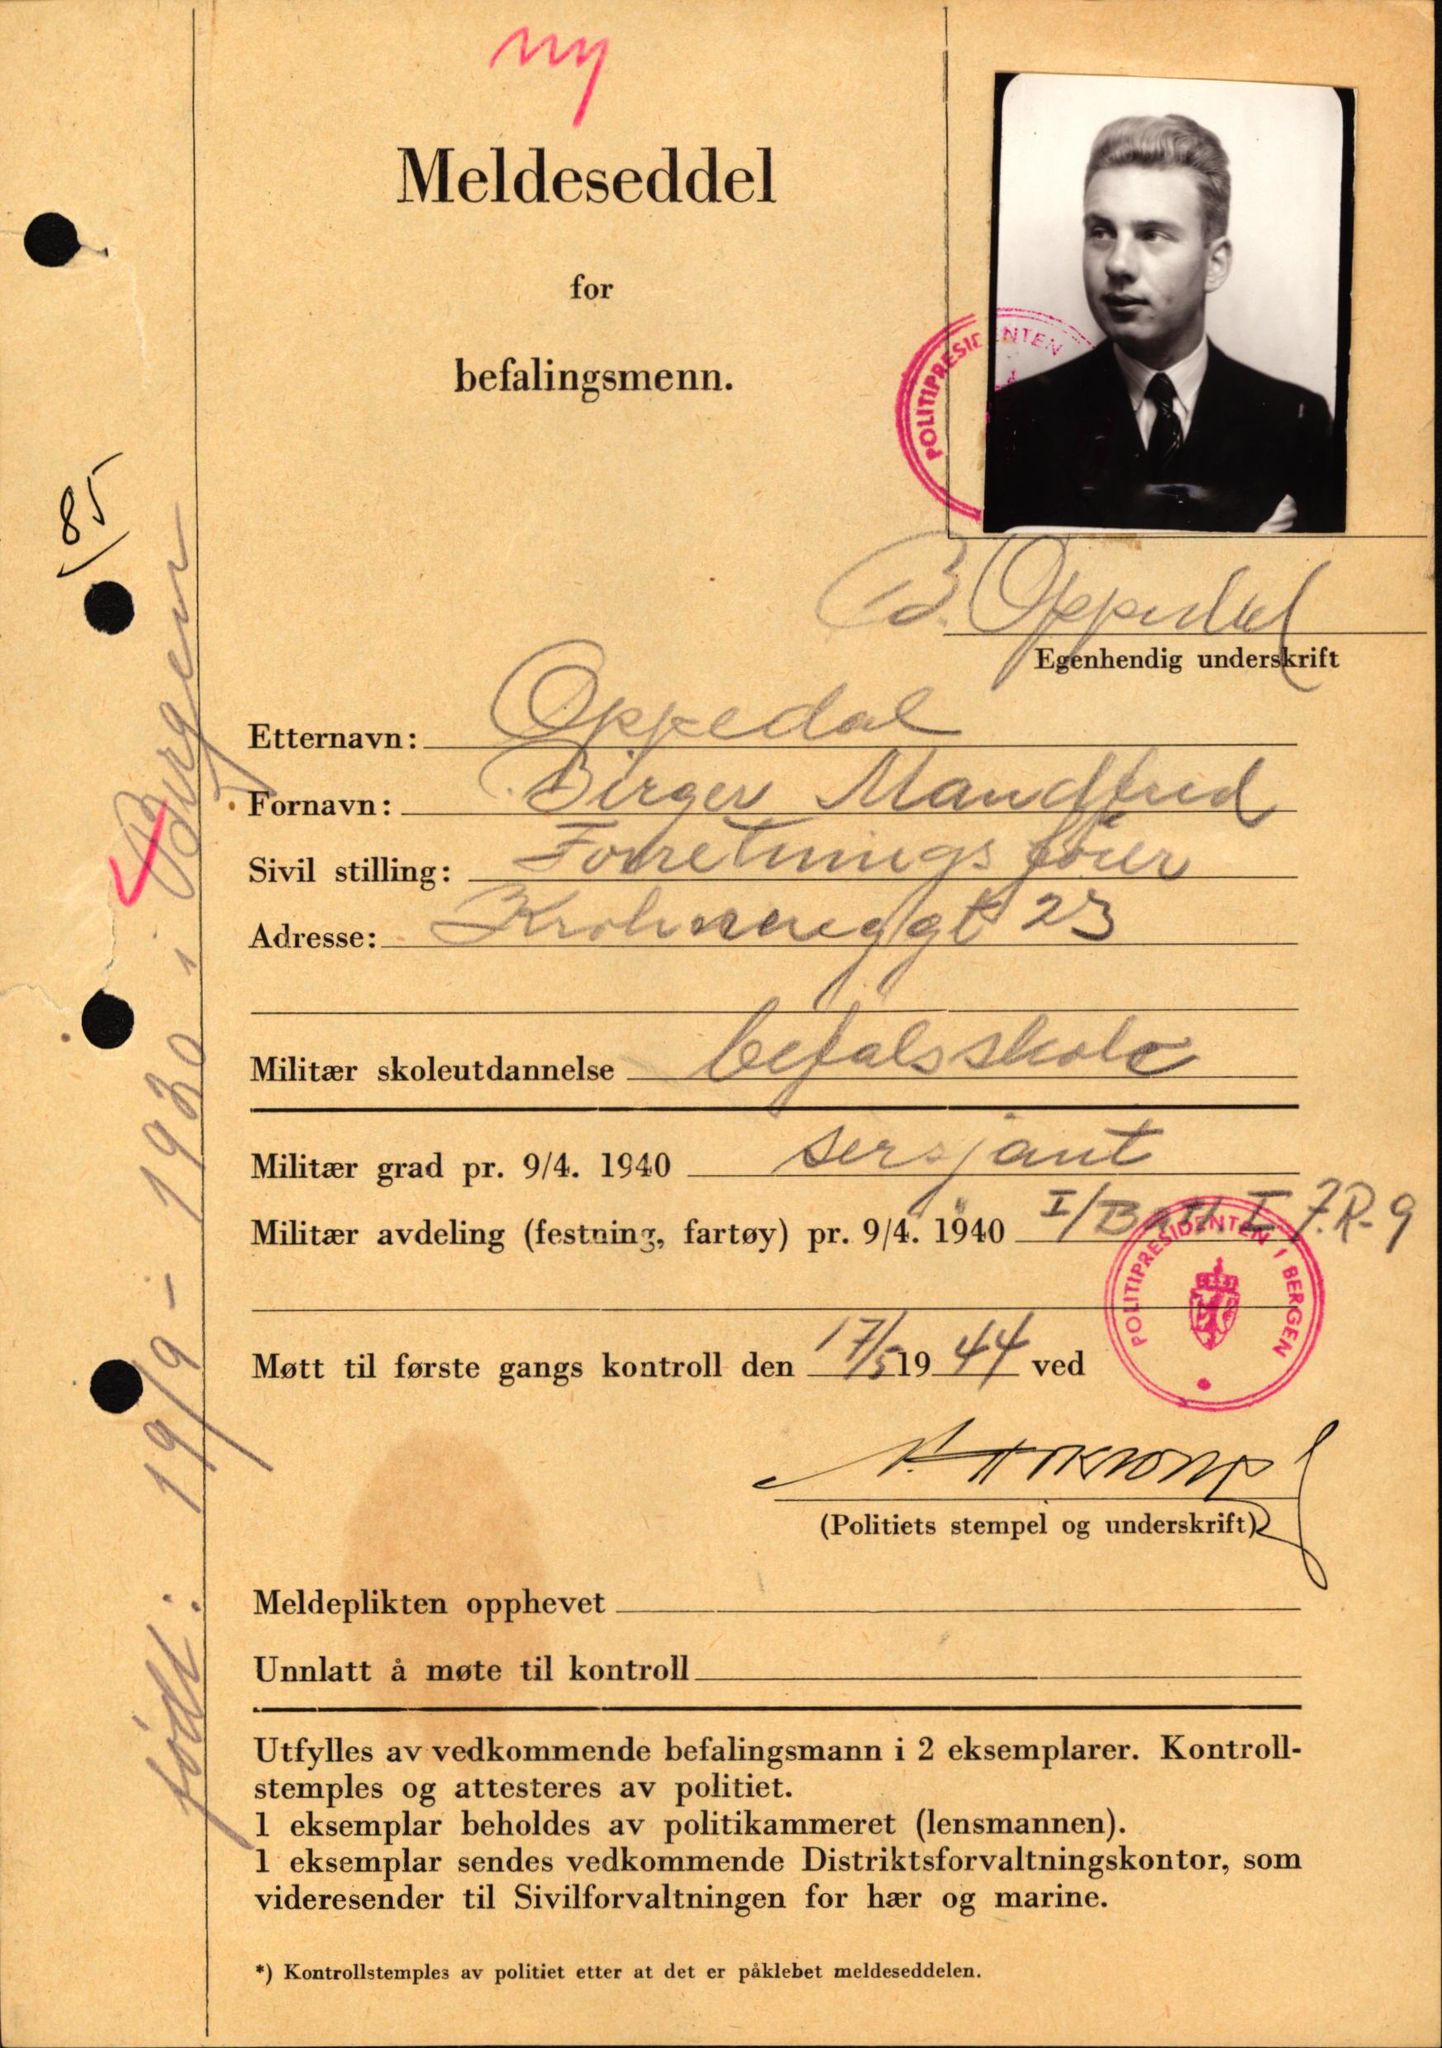 ny
Meldeseddel
for
befalingsmenn.
POLITIPRESIDENTEN
85
B. Oppedal
Egenhendig underskrift
Etternavn: Oppedal
Fornavn: Birger Mandfred
Sivil stilling: Forretningsfører
Adresse: Krohneneggt 23
Militær skoleutdannelse befalsskole
Militær grad pr. 9/4. 1940 sersjant
Militær avdeling (festning, fartøy) pr. 9/4. 1940 I/Batt I J.R-9
POLITIPRESIDENTEN I BERGEN
Møtt til første gangs kontroll den 17/5 1944 ved
(Politiets stempel og underskrift)
Meldeplikten opphevet
Unnlatt å møte til kontroll
Utfylles av vedkommende befalingsmann i 2 eksemplarer. Kontroll-
stemples og attesteres av politiet.
1 eksemplar beholdes av politikammeret (lensmannen).
1 eksemplar sendes vedkommende Distriktsforvaltningskontor, som
videresender til Sivilforvaltningen for hær og marine.
*) Kontrollstemples av politiet etter at det er påklebet meldeseddelen.
født: 19/9-1920 i Bergen